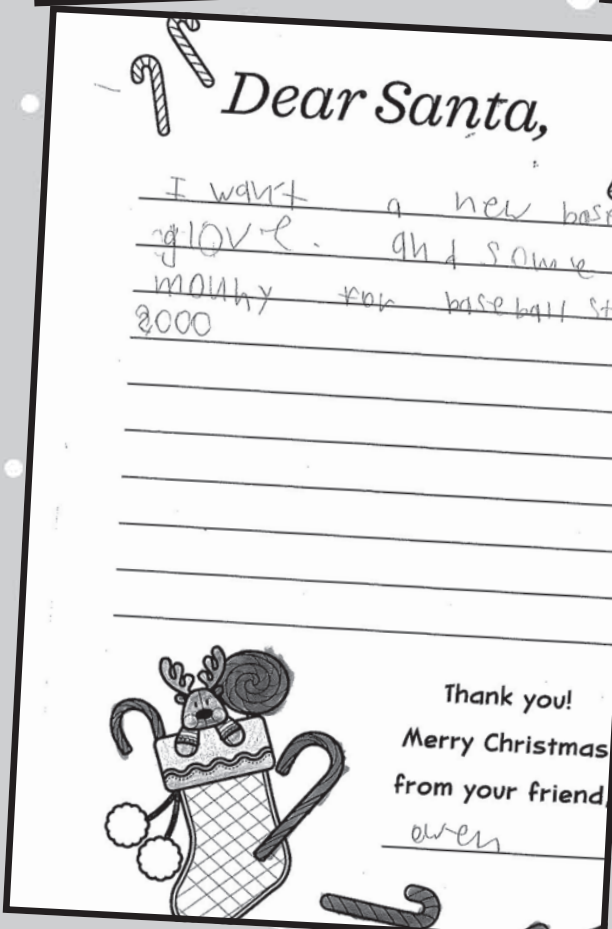 Dear Santa,
I want a new base
glove. and some
mouhy for baseball st
2000
Thank you!
Merry Christmas
from your friend,
owen